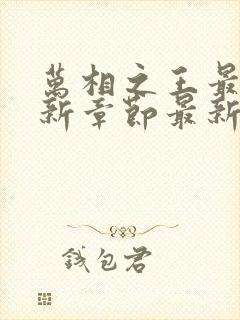 萬相之王最
新章節最新
錢包君